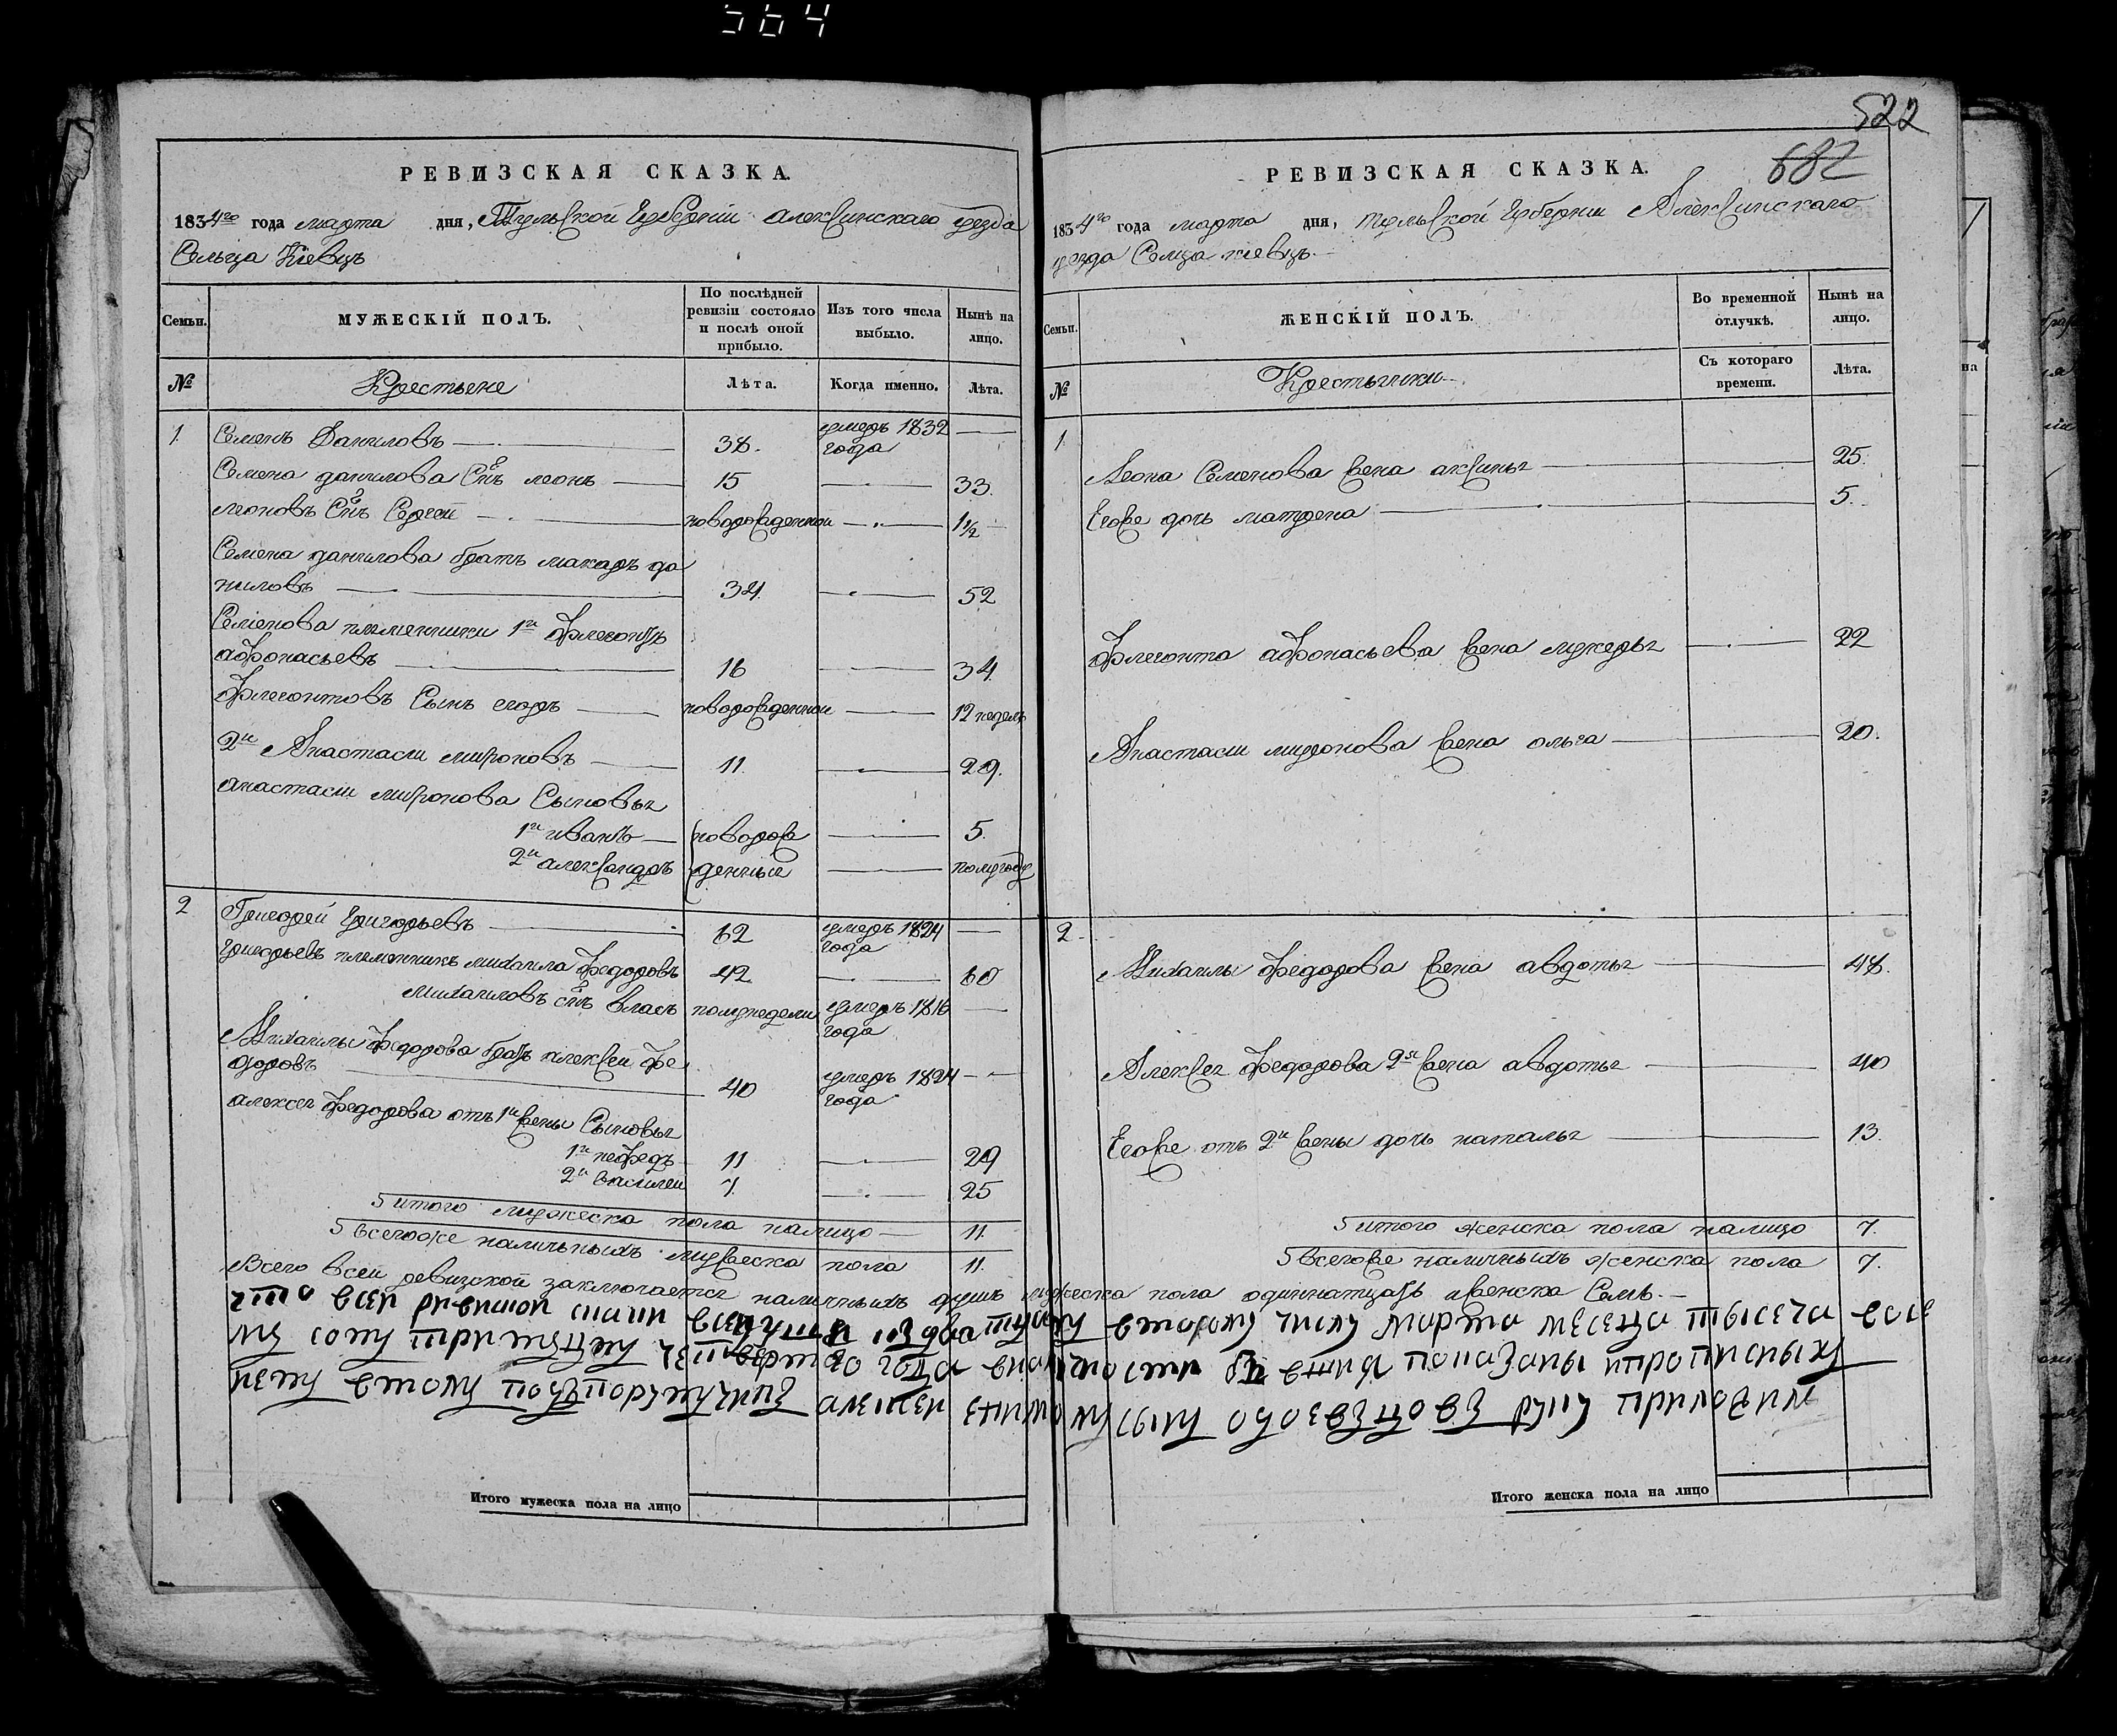 564
522
682
РЕВИЗСКАЯ СКАЗКА.
1834го года марта дня, Тульской Губернии алексинскаго уезда
Сельца Кіевцъ
Семьи. МУЖЕСКІЙ ПОЛЪ. По послѣдней ревизіи состояло и послѣ оной прибыло. Изъ того числа выбыло. Нынѣ на лицо.
№ Крестьяне Лѣта. Когда именно. Лѣта.
1. Семенъ Даниловъ 38. умеръ 1832 года
Семена данилова Снъ леонъ 15 33.
леоновъ Снъ Сергей новорожденной 1 1/2
Семена данилова братъ макаръ да
ниловъ 34. 52
Семенова племенники 1й Флегонтъ
афонасьевъ 16 34.
Флегонтовъ Сынъ егоръ новорожденной 12 недель
2й Анастасии мироновъ 11. 29.
анастасии миронова Сыновья
1й иванъ новорож 5.
2й александръ денныи полугоду
2 Григорей Григорьевъ 62 умеръ 1824 года
григорьевъ племенникъ михаила Федоровъ 42 60
михаиловъ снъ власъ полунедели умеръ 1816 года
Михаилы Федорова братъ алексей Фе
доровъ 40 умеръ 1824 года
алексея Федорова отъ 1й жены Сыновья
1й нефедъ 11 29
2й василеи 7. 25
итого мужеска пола налицо 11.
всегоже наличныхъ мужеска пола 11.
РЕВИЗСКАЯ СКАЗКА.
1834го года марта дня, тульской Губернии Алексинскаго
уезда Селца кіевцъ.
Семьи. ЖЕНСКІЙ ПОЛЪ. Во временной отлучкѣ. Нынѣ на лицо.
№ Крестьянки Съ котораго времени. Лѣта.
1. Леона Семенова жена аксинья 25.
Егоже дочь матрена 5.
Флегонта афонасьева жена лукерья 22
Анастасии миронова жена ольга 20.
2. Михаилы Федорова жена авдотья 48.
Алексея Федорова 2я жена авдотья 40
Егоже отъ 2й жены дочь наталья 13.
итого женска пола налицо 7.
всегоже наличныхъ женска пола 7.
Всего всей ревизской заключается наличныхъ душъ мужеска пола одиннатцать женска Семь.
что всей ревиской второму числу марта месеца тысеча восе
му сту тритцеть четвертого года показаны ипрописных
нему втому руку приложил
Итого мужеска пола на лицо
Итого женска пола на лицо